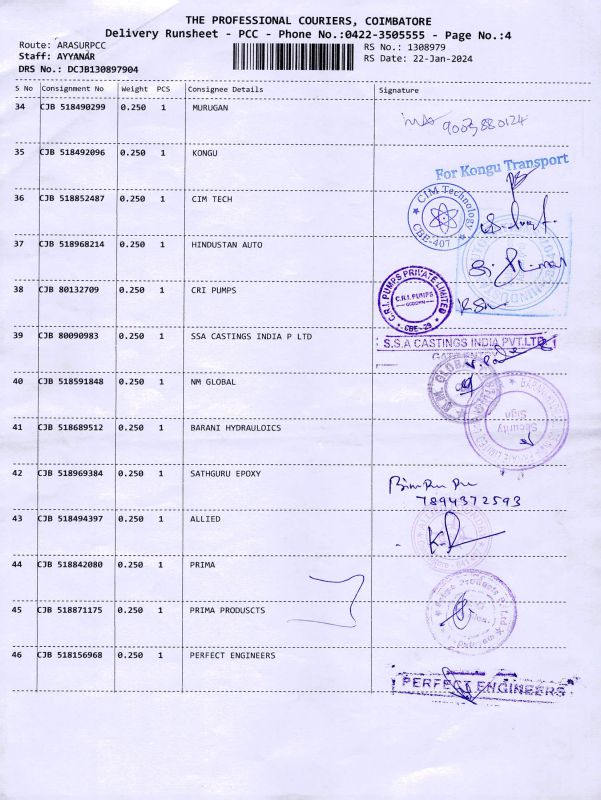 THE PROFESSIONAL COURIERS, COIMBATORE
Delivery Runsheet - PCC - Phone No.:0422-3505555 - Page No.:4
Route: ARASURPCC
RS No.: 1308979
Staff: AYYANAR
RS Date: 22-Jan-2024
DRS No.: DCJB130897904
S No Consignment No Weight PCS Consignee Details Signature
34 CJB 518490299 0.250 1 MURUGAN
9003880124
35 CJB 518492096 0.250 1 KONGU
For Kongu Transport
36 CJB 518852487 0.250 1 CIM TECH
CIM Technology
CBE-407
37 CJB 518968214 0.250 1 HINDUSTAN AUTO
38 CJB 80132709 0.250 1 CRI PUMPS
C.R.I. PUMPS PRIVATE LIMITED
C.R.I. PUMPS
GODOWN
CBE-29
39 CJB 80090983 0.250 1 SSA CASTINGS INDIA P LTD
S.S.A CASTINGS INDIA PVT.LTD
40 CJB 518591848 0.250 1 NM GLOBAL
41 CJB 518689512 0.250 1 BARANI HYDRAULOICS
Security
Sign
42 CJB 518969384 0.250 1 SATHGURU EPOXY
7894372593
43 CJB 518494397 0.250 1 ALLIED
44 CJB 518842080 0.250 1 PRIMA
45 CJB 518871175 0.250 1 PRIMA PRODUSCTS
46 CJB 518156968 0.250 1 PERFECT ENGINEERS
PERFECT ENGINEERS